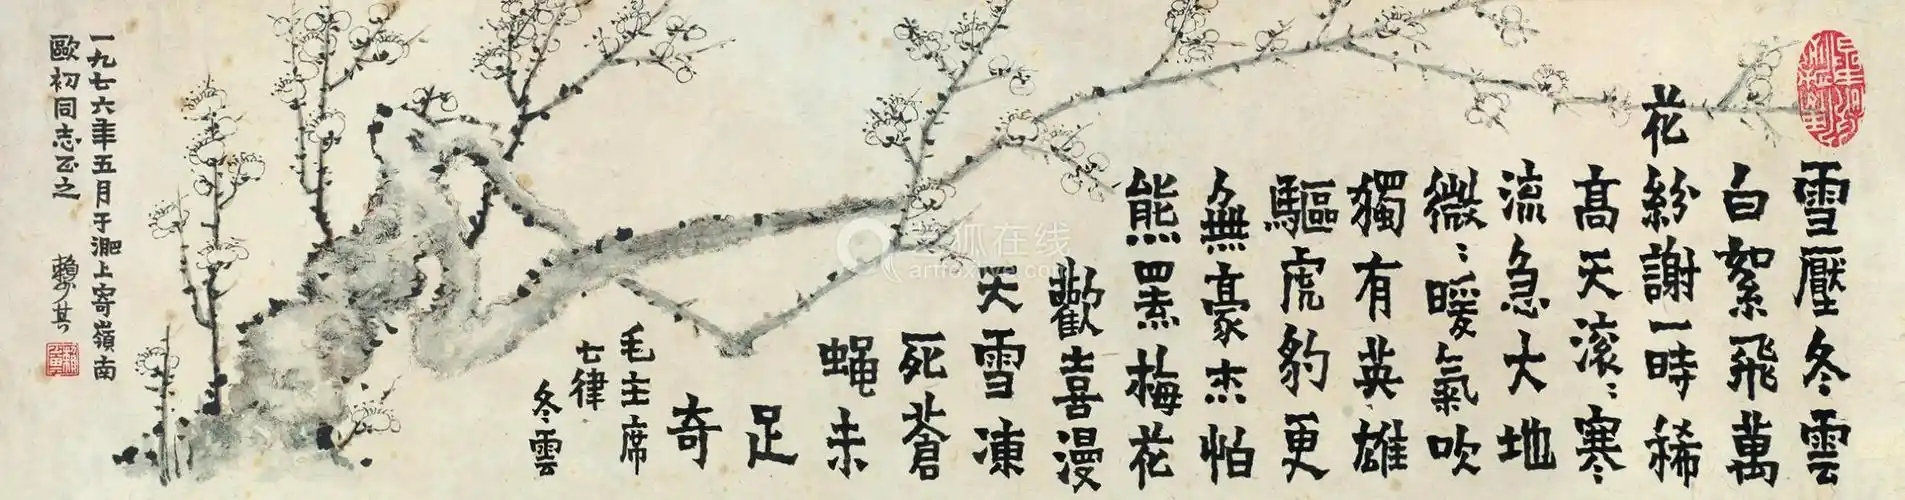 雪壓冬雲
白絮飛萬
花紛謝一時稀
高天滾〻寒
流急大地
微〻暖氣吹
獨有英雄
驅虎豹更
無豪杰怕
熊羆梅花
歡喜漫
天雪凍
死蒼
蝇未
足
奇
毛主席
七律
冬雲
一九七六年五月于淝上寄嶺南
歐初同志正之
賴少其